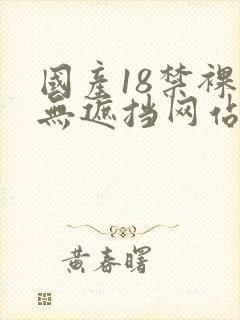 國產18禁裸
無遮挡网佔
黄春曙